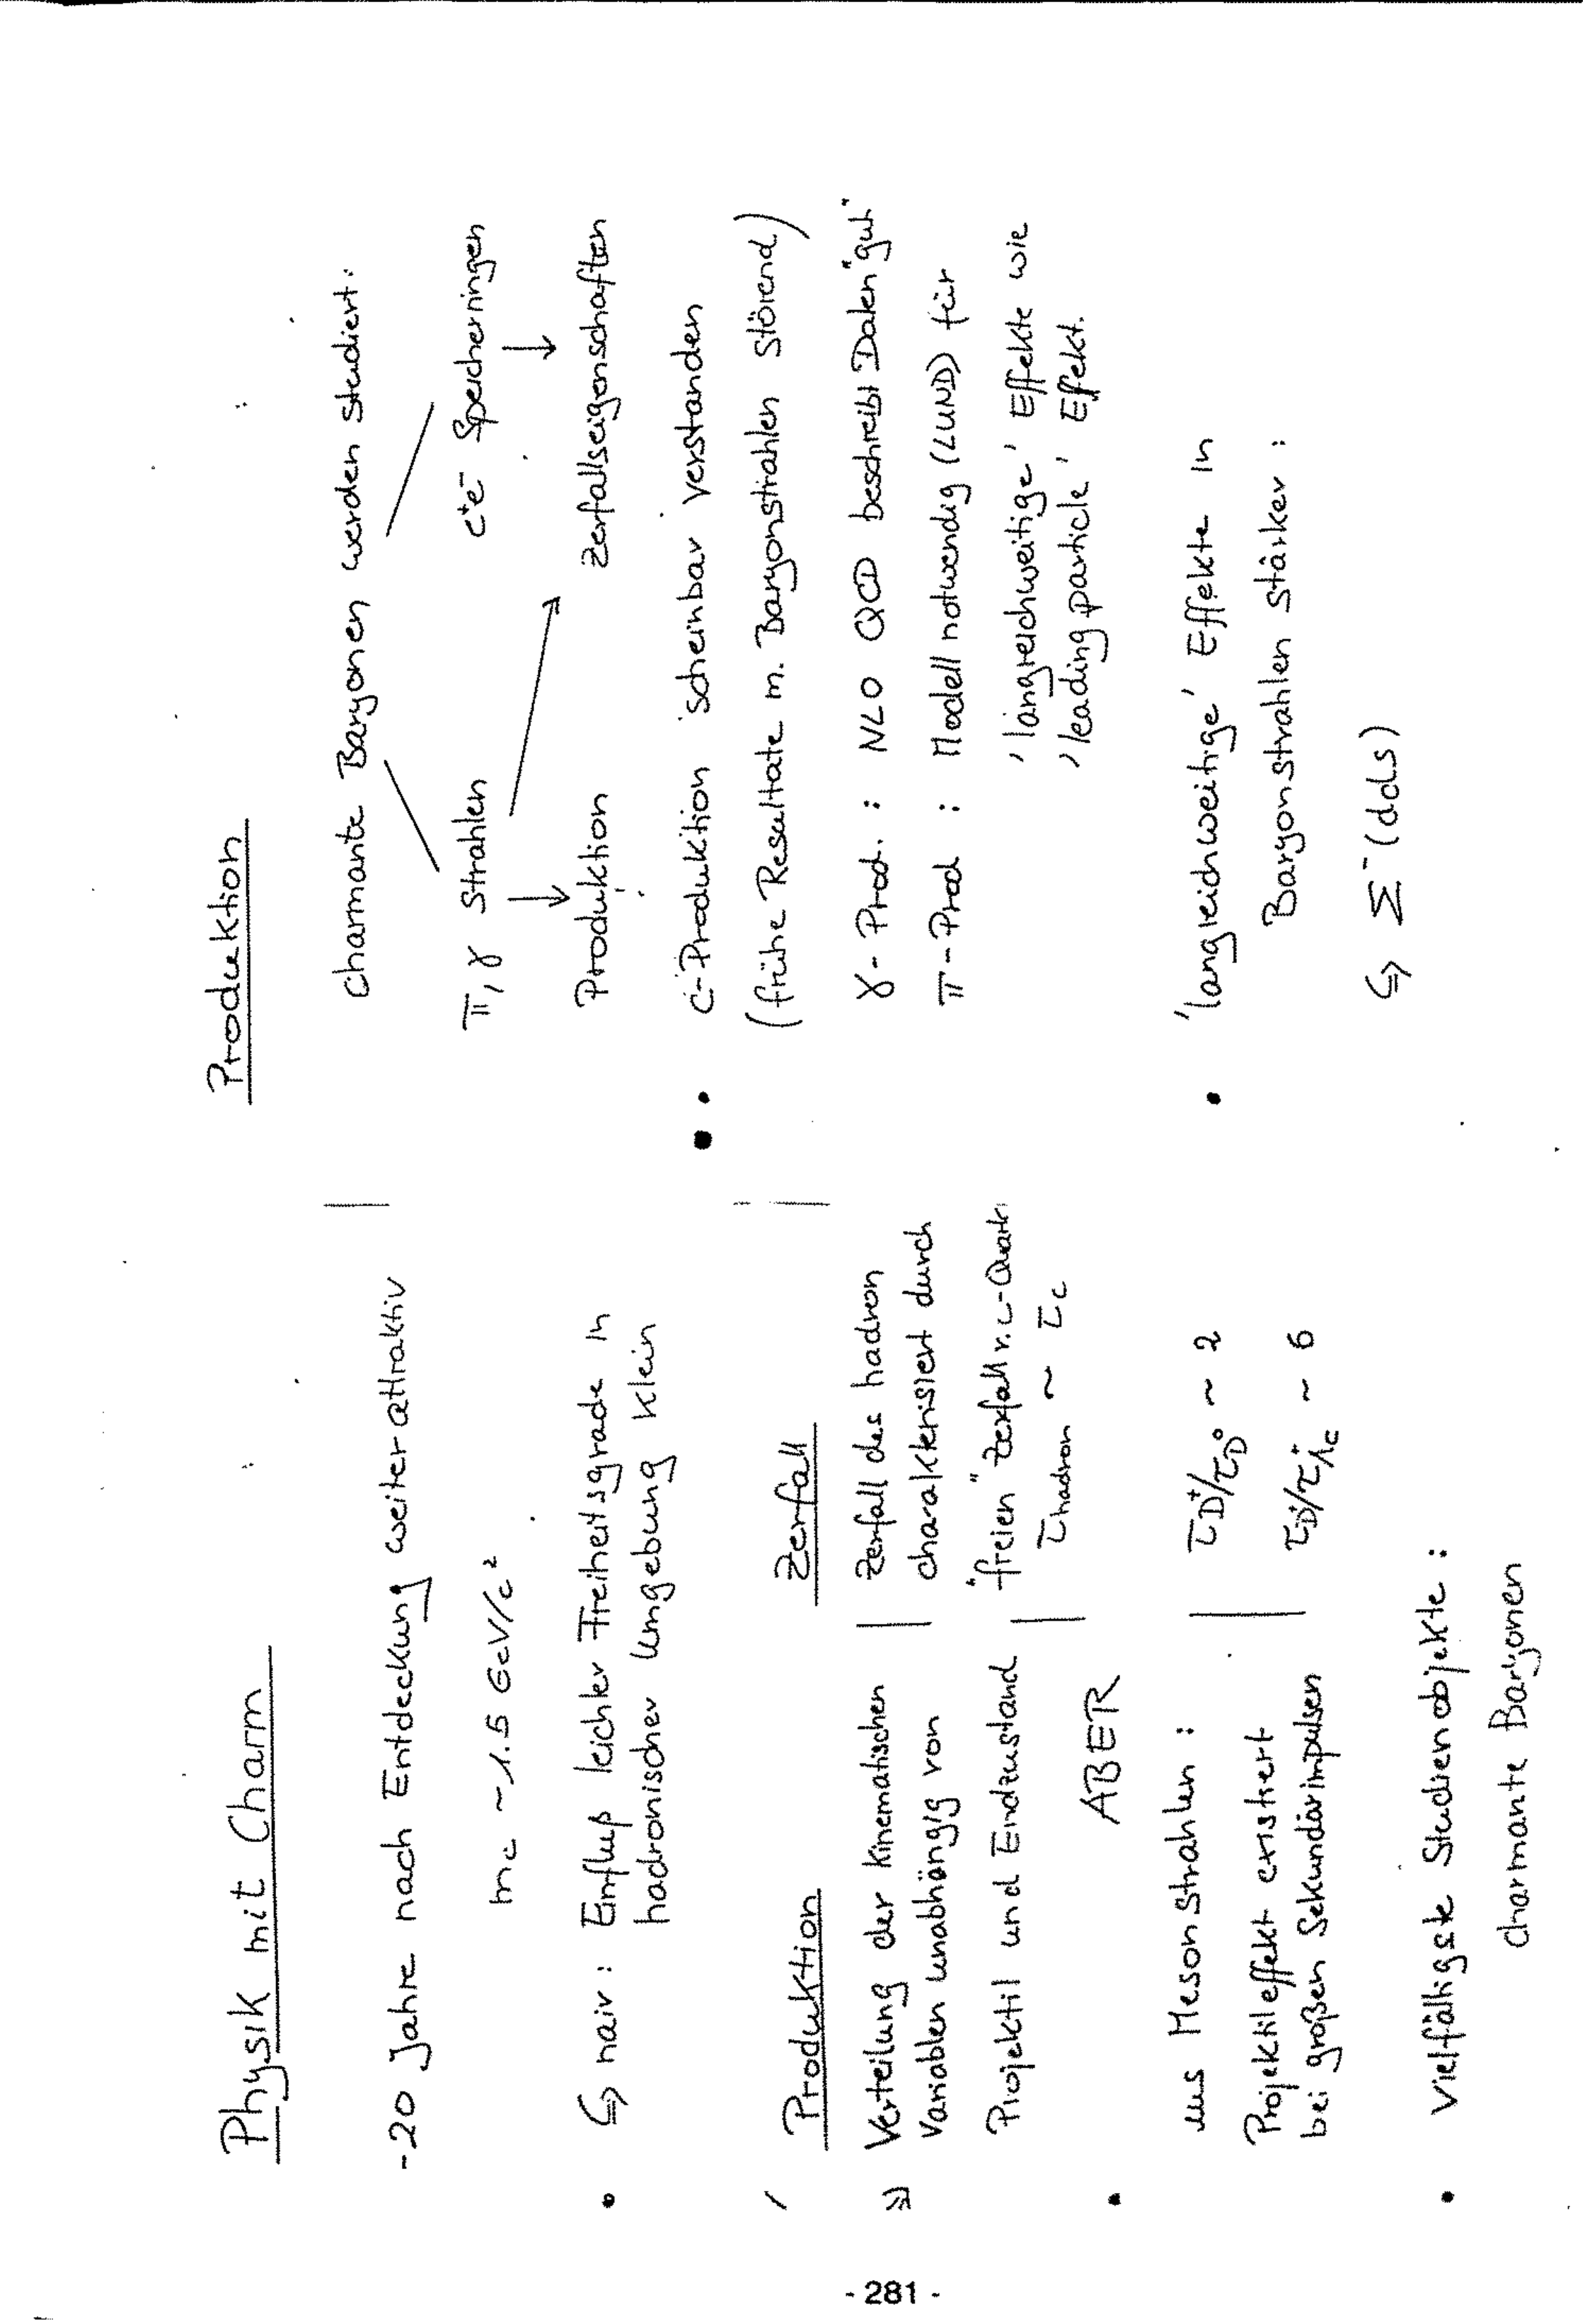 Physik mit Charm
~20 Jahre nach Entdeckung weiter attraktiv
mc ~ 1.5 GeV/c²
• ↪ naiv : Einfluß leichter Freiheitsgrade in
hadronischer Umgebung klein
Produktion
Zerfall
Verteilung der kinematischen
Variablen unabhängig von
Projektil und Endzustand
Zerfall des hadron
charakterisiert durch
"freien" Zerfall v. c-Quark
τhadron ~ τc
• ABER
aus Mesonstrahlen :
Projektileffekt existiert
bei großen Sekundärimpulsen
τD⁺/τD⁰ ~ 2
τD⁺/τΛc⁺ ~ 6
• Vielfältigste Studienobjekte :
charmante Baryonen
Produktion
Charmante Baryonen werden studiert:
π, γ Strahlen
e⁺e⁻ Speicherringen
Produktion
Zerfallseigenschaften
• c-Produktion scheinbar verstanden
(frühe Resultate m. Baryonstrahlen störend)
γ - Prod. : NLO QCD beschreibt Daten "gut"
π - Prod : Modell notwendig (LUND) für
'langreichweitige' Effekte wie
'leading particle' Effekt.
• 'langreichweitige' Effekte in
Baryonstrahlen stärker :
↪ Σ⁻ (dds)
- 281 -